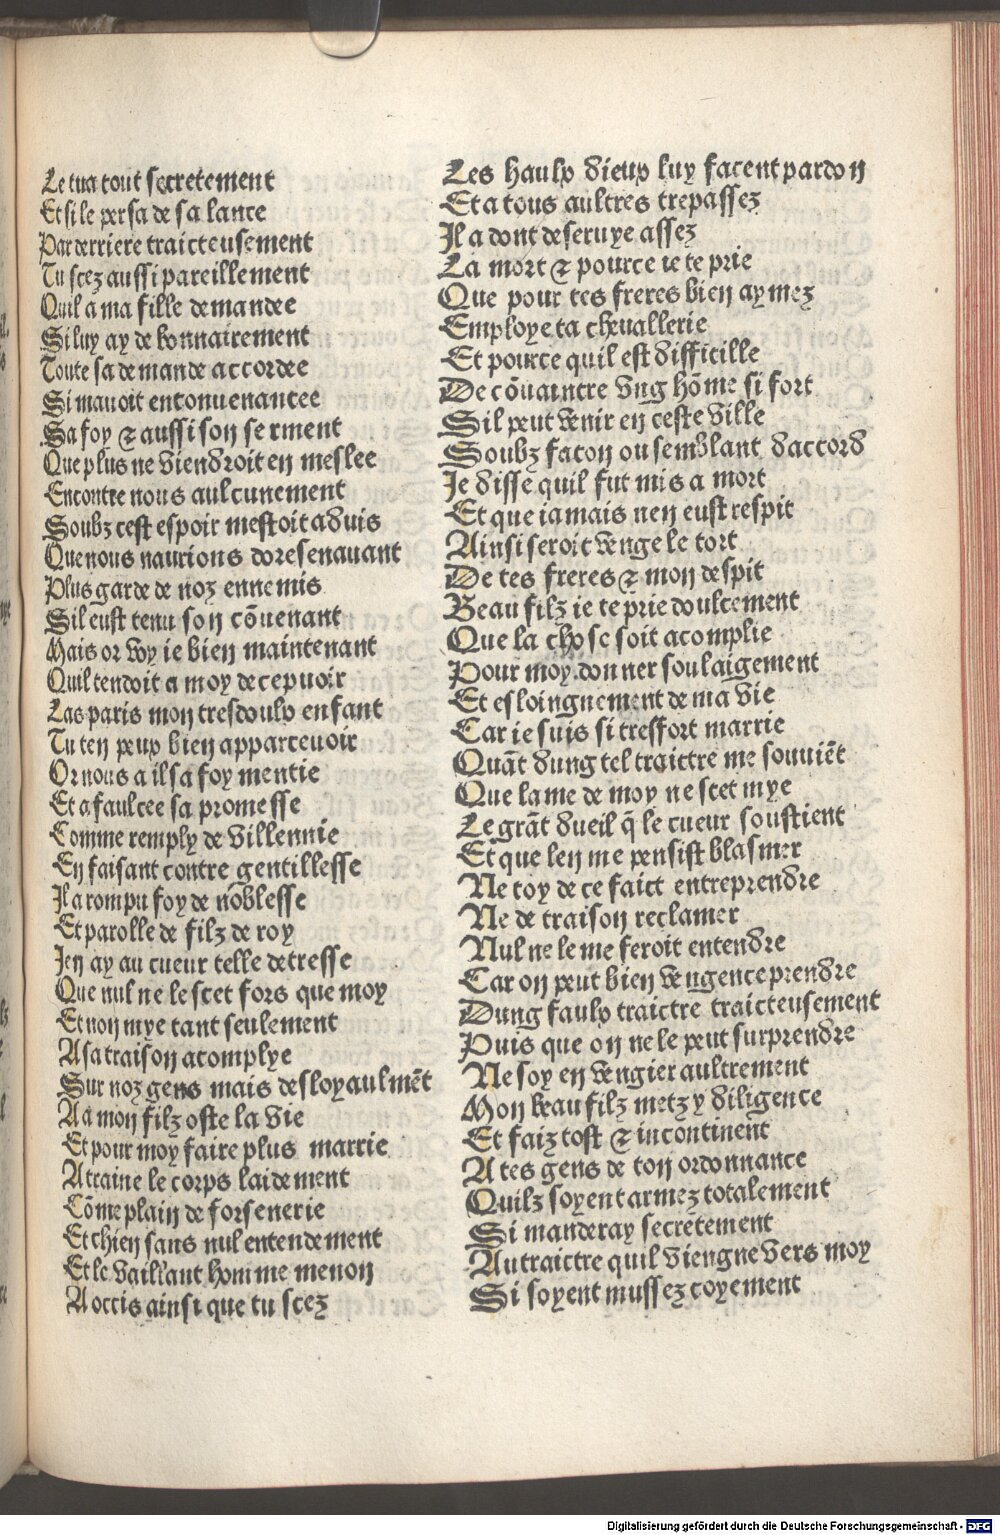 Le tua tout secretement
Et si le persa de sa lance
Par derriere traicteusement
Tu scez aussi pareillement
Quil a ma fille demandee
Si luy ay debonnairement
Toute sa demande accordee
Si mauoit enconuenancee
Sa foy & aussi son serment
Que plus ne viendroit en meslee
Encontre nous aulcunement
Soubz cest espoir mestoit aduis
Que nous naurions doresenauant
Plus garde de noz ennemis
Sil eust tenu son cõuenant
Mais or voy ie bien maintenant
Quil tendoit a moy decepuoir
Las paris mon tresdoulx enfant
Tu ten peux bien apparceuoir
Or nous a il sa foy mentie
Et a faulcee sa promesse
Comme remply de villennie
En faisant contre gentillesse
Il a rompu foy de noblesse
Et parolle de filz de roy
Jen ay au cueur telle detresse
Que nul ne le scet fors que moy
Et non mye tant seulement
A sa traison acomplye
Sur noz gens mais desloyaulmẽt
A a mon filz oste la vie
Et pour moy faire plus marrie
A traine le corps laidement
Cõme plain de forsenerie
Et chien sans nul entendement
Et le vaillant homme menon
A occis ainsi que tu scez
Les haulx dieux luy facent pardon
Et a tous aultres trepassez
Il a dont deseruye assez
La mort & pource ie te prie
Que pour tes freres bien aymez
Employe ta cheuallerie
Et pource quil est difficille
De cõuaincre vng hõme si fort
Sil peut venir en ceste ville
Soubz facon ou semblant daccord
Je disse quil fut mis a mort
Et que iamais nen eust respit
Ainsi seroit venge le tort
De tes freres & mon despit
Beau filz ie te prie doulcement
Que la chose soit acomplie
Pour moy.donner soulaigement
Et esloingnement de ma vie
Car ie suis si tresfort marrie
Quãt dung tel traictre me souuiẽt
Que lame de moy ne scet mye
Le grãt dueil q̃ le cueur soustient
Et que len me pensist blasmer
Ne toy de ce faict entreprendre
Ne de traison reclamer
Nul ne le me feroit entendre
Car on peut bien vengence prendre
Dung faulx traictre traicteusement
Puis que on ne le peut surprendre
Ne soy en vengier aultrement
Mon beau filz metz y diligence
Et faiz tost & incontinent
A tes gens de ton ordonnance
Quilz soyent armez totalement
Si manderay secretement
Au traictre quil viengne vers moy
Si soyent mussez coyement
Digitalisierung gefördert durch die Deutsche Forschungsgemeinschaft - DFG